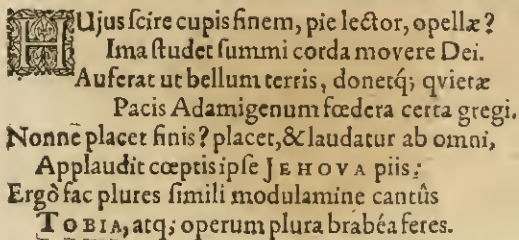 HUjus ſcire cupis finem, pie lector, opellæ?
Ima ſtudet ſummi corda movere Dei.
Auferat ut bellum terris, donetq́; qvietæ
Pacis Adamigenum fœdera certa gregi.
Nonne placet finis? placet, & laudatur ab omni,
Applaudit cœptis ipſe JEHOVA piis;
Ergò fac plures ſimili modulamine cantûs
TOBIA, atq; operum plura brabéa feres.